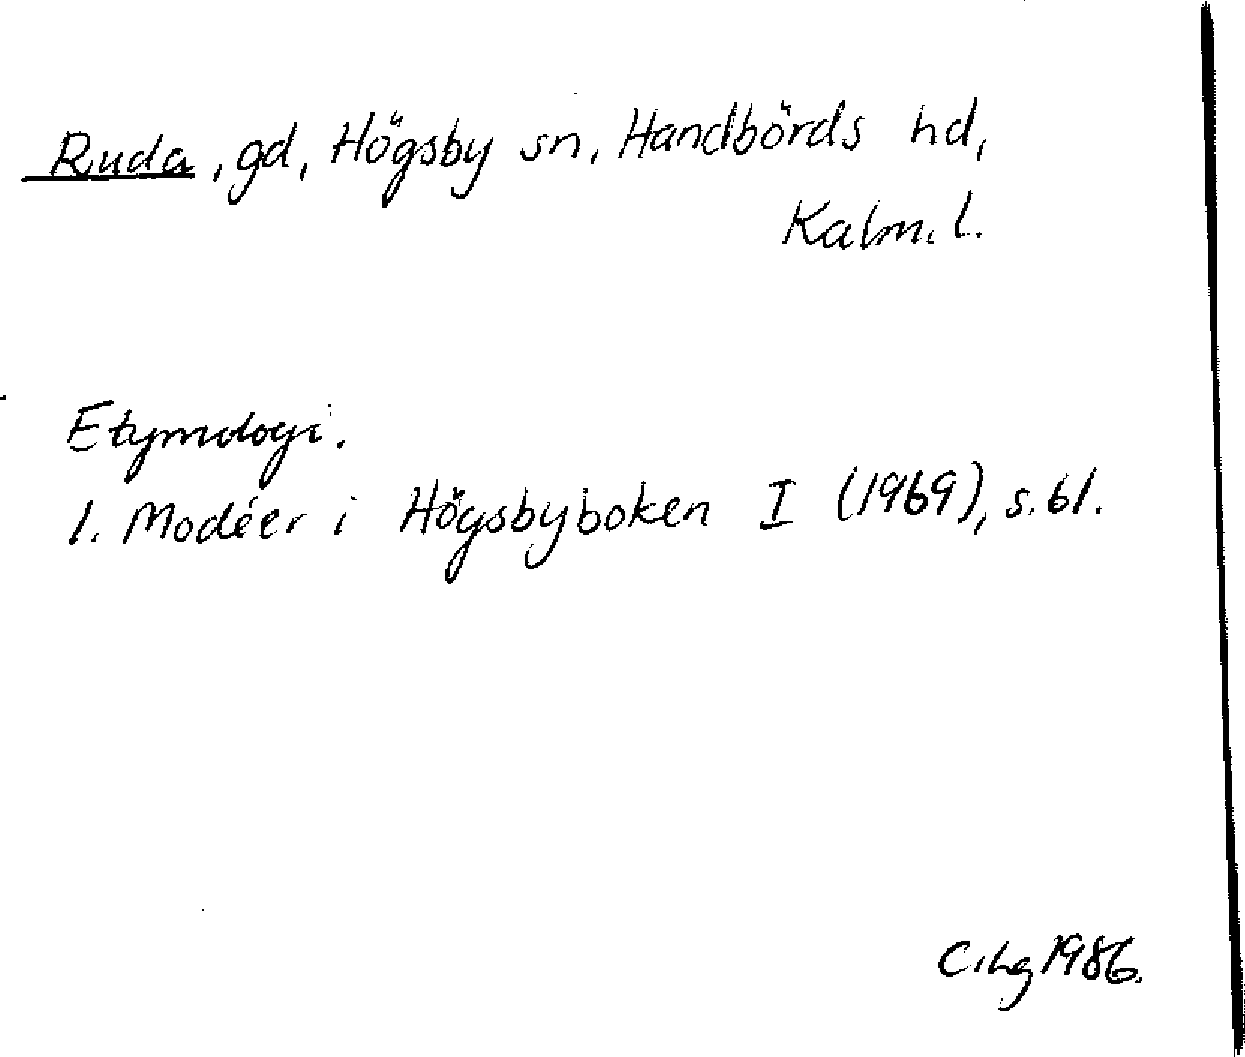 Ruda, gd, Högsby sn, Handbörds hd,
Kalm. l.
Etymologi.
1. Modéer i Högsbyboken I (1969), s. 61.
1986.